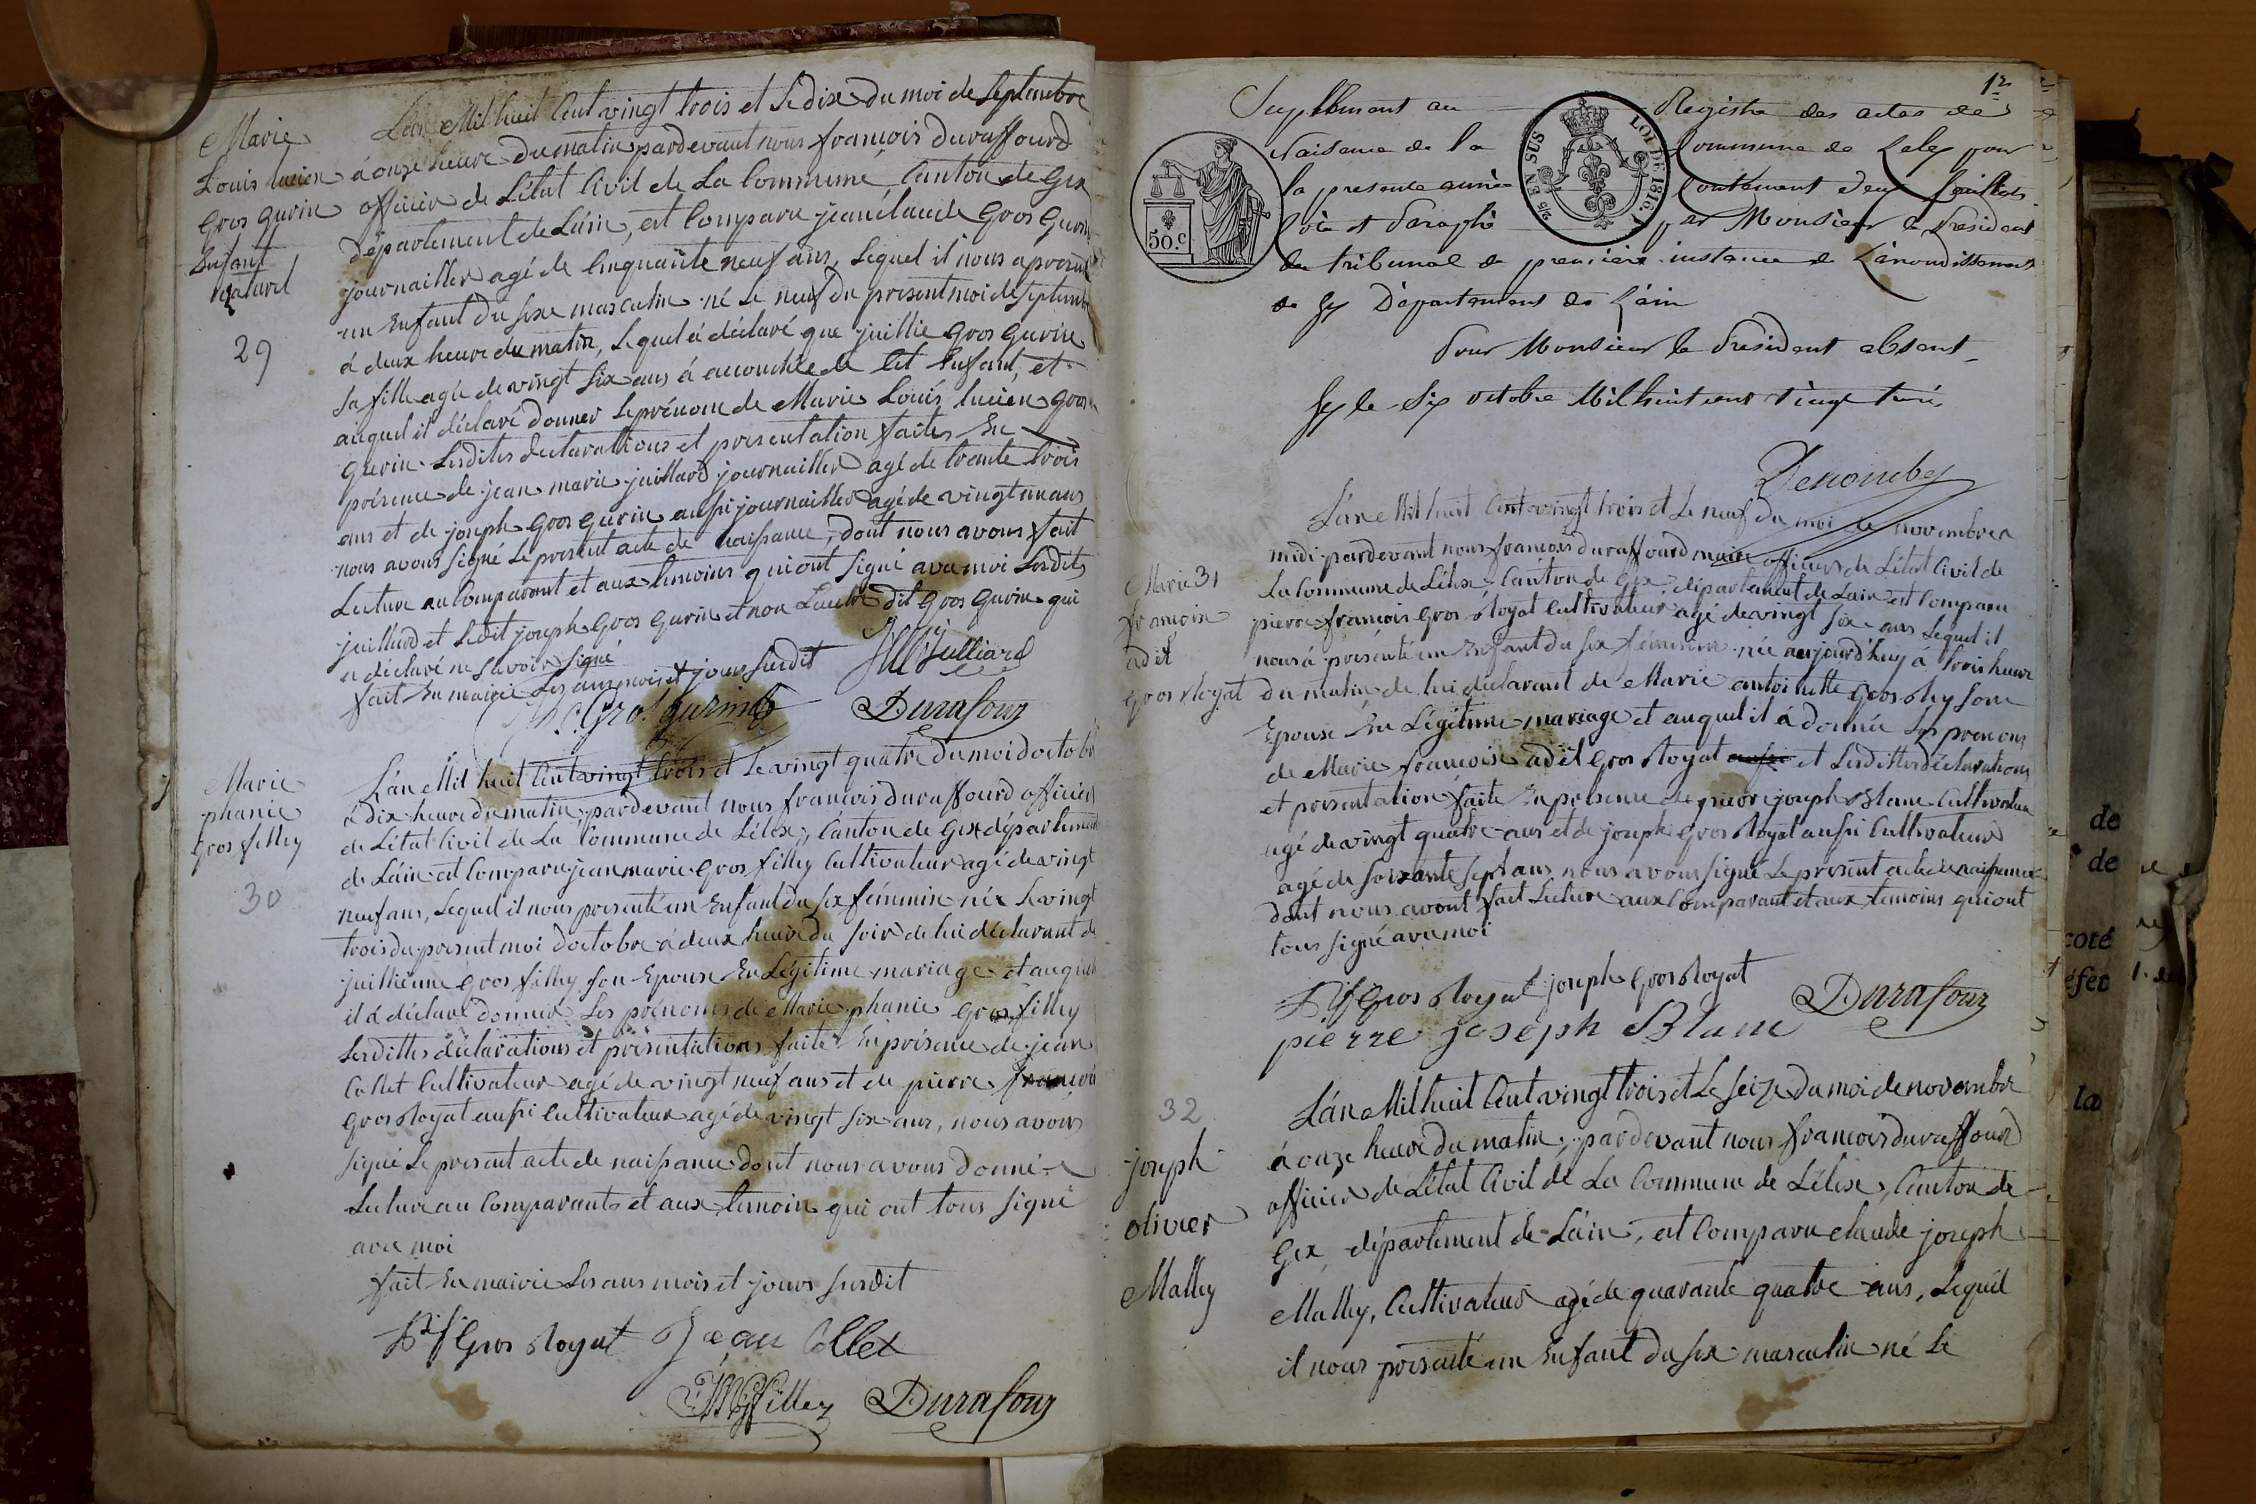 Marie
Louis lucien
gros gurin
Enfant
naturel
29
L'an Mil huit Cent vingt trois et Le dix du moi de Septembre
á onze heure du matin pardevant nous francois duraffourd
officier de L'état Civil de La Commune, Canton de Gex
département de L'ain, est Comparu jean claude Gros Gurin
journaillier agé de Cinquante neuf ans, Lequel il nous a présenté
un Enfant du sexe masculin né Le neuf du present moi de septembre
á deux heure du matin, Lequel á déclaré que juillie gros gurin
sa fille agée de vingt six ans á accouchée de Cet Enfant, et
auquel il déclaré donner Le prénom de Marie Louis lucien gros
gurin Lesdites déclarations et présentation faites En
présence de jean marie juillard journaillier agé de trante trois
ans et de joseph gros gurin aussi journaillier agé de vingt un ans
nous avons signé Le présent acte de naissance, dont nous avons fait
Lecture au Comparant et aux témoins qui ont signé avec moi Lesdits
juillard et Ledit joseph Gros gurin et non Lautre dit gros gurin qui
a déclaré ne savoir signé
fait En mairie Les ans mois et jour susdit
JM Julliard
J. C. Gros gurin
Durafour
Marie
phanie
gros filley
30
L'an Mil huit Cent vingt trois et Le vingt quatre du moi doctobre
á dix heure du matin pardevant nous francois duraffourd officier
de L'état Civil de La Commune de Lélex, Canton de Gex département
de L'ain est Comparu jean marie gros filley Cultivateur agé de vingt
neuf ans, Lequel il nous présenté un Enfant du sex féminin née Le vingt
trois du présent moi doctobre á deux heure du soir de lui déclarant de
juillienne gros filley son Epouse En Légitime mariage et auquel
il á déclaré donner Les prénoms de Marie phanie gros filley
Lesdittes déclarations et présentations faite En présence de jean
Collet Cultivateur agé de vingt neuf ans et de pierre françois
gros Royat aussi Cultivateur agé de vingt six ans, nous avons
signé Le present acte de naissance dont nous avons donné
Lecture au Comparants et aux témoin qui ont tous signé
avec moi
fait En mairie Les ans mois et jours susdit
P f Gros Royat Jean Collet
JMGFilley Durafour
12
Supplément au Registre des actes de
Naisance de la Commune de Lelex pour
la presente année Contenant deux feuillets
Coté et Paraphé par Monsieur le President
du tribunal de premiere instance de L'arrondissement
de Gex Département de l'ain
50.c
2/5 EN SUS
LOI DE 1816
Pour Monsieur le Président absent
Gex le Six octobre Mil huit cent vingt trois
Marie 31
francoise
adél
gros Royat
L'an Mil huit Cent vingt trois et Le neuf du moi de novembre a
midi pardevant nous francois duraffourd maire officier de L'état Civil de
La Commune de Lélex, Canton de Gex, département de L'ain est Comparu
pierre francois gros Royat Cultivateur agé de vingt six ans Lequel il
nous á présenté un Enfant du sex féminin née aujourd'huy á trois heure
du matin de lui déclarant de Marie antoinette gros Rey son
Epouse En Légitime mariage et auquel il á donnée Les prenoms
de Marie françoise adél gros Royat et Lesdittes déclarations
et présentation faite En présence de pierre joseph Blanc Cultivateur
agé de vingt quatre ans et de joseph gros Royat aussi Cultivateur
agé de soixante sept ans nous avons signé Le present acte de naissance
dont nous avont fait Lecture aux Comparant et aux temoins qui ont
tous signé avec moi
P f Gros Royat joseph gros Royat
pierre joseph Blanc Durafour
32
joseph
olivier
Malley
L'an Mil huit Cent vingt trois et Le seize du moi de novembre
á onze heure du matin, pardevant nous francois duraffourd
officier de L'état Civil de La Commune de Lélex, Canton de
Gex département de L'ain, est Comparu claude joseph
Malley, Cultivateur agé de quarante quatre ans, Lequel
il nous présenté un Enfant du sex masculin né Le
de
de
coté
la